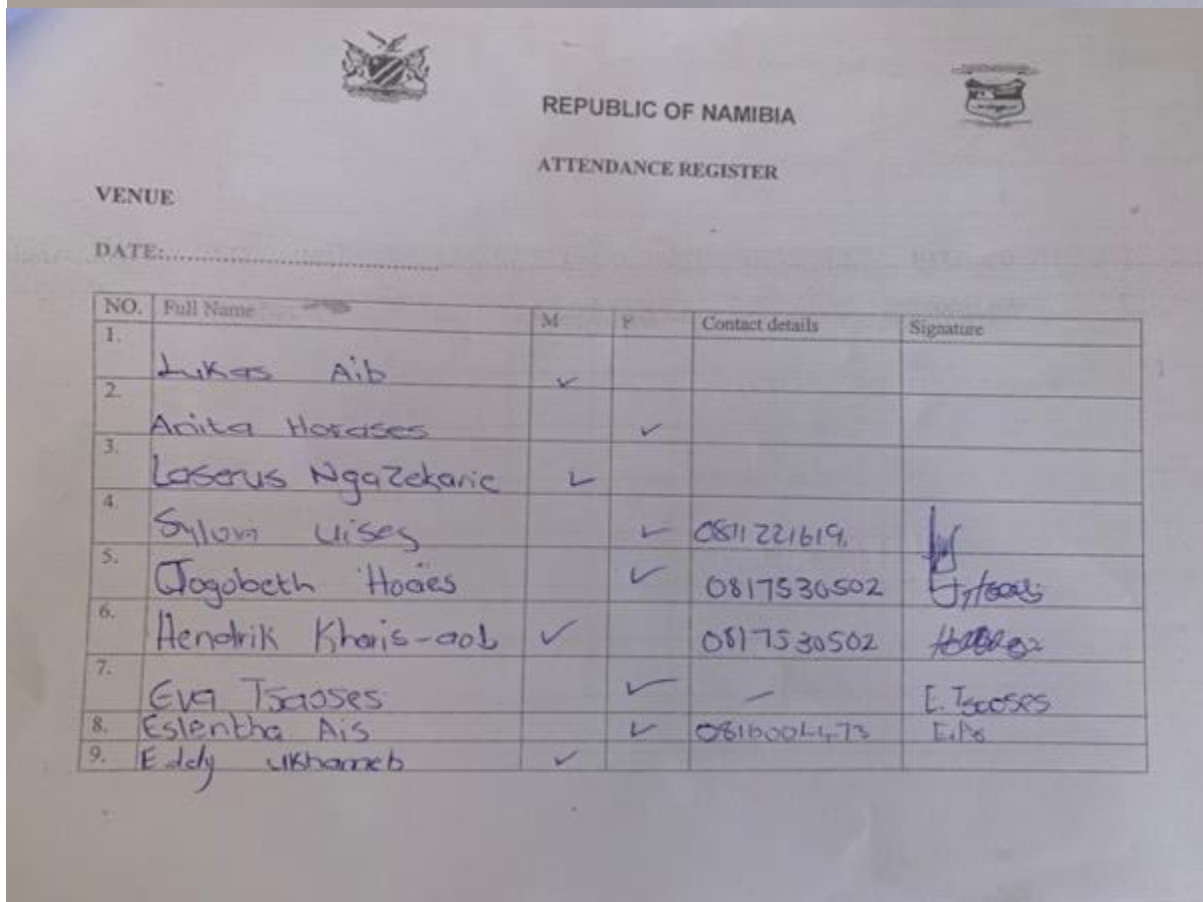 REPUBLIC OF NAMIBIA
ATTENDANCE REGISTER
VENUE
DATE:.......................................
NO. Full Name M F Contact details Signature
1. Lukas Aib ✓
2. Anita Horases ✓
3. Laserus Ngazekaric ✓
4. Sylvia Uises ✓ 0811221619.
5. Jogobeth Hoaes ✓ 0817530502
6. Hendrik Kharis-aob ✓ 0817530502
7. Eva Tsaoses ✓ – E. Tsaoses
8. Eslentha Ais ✓ E.Ais
9. Eddy Ukhameb ✓